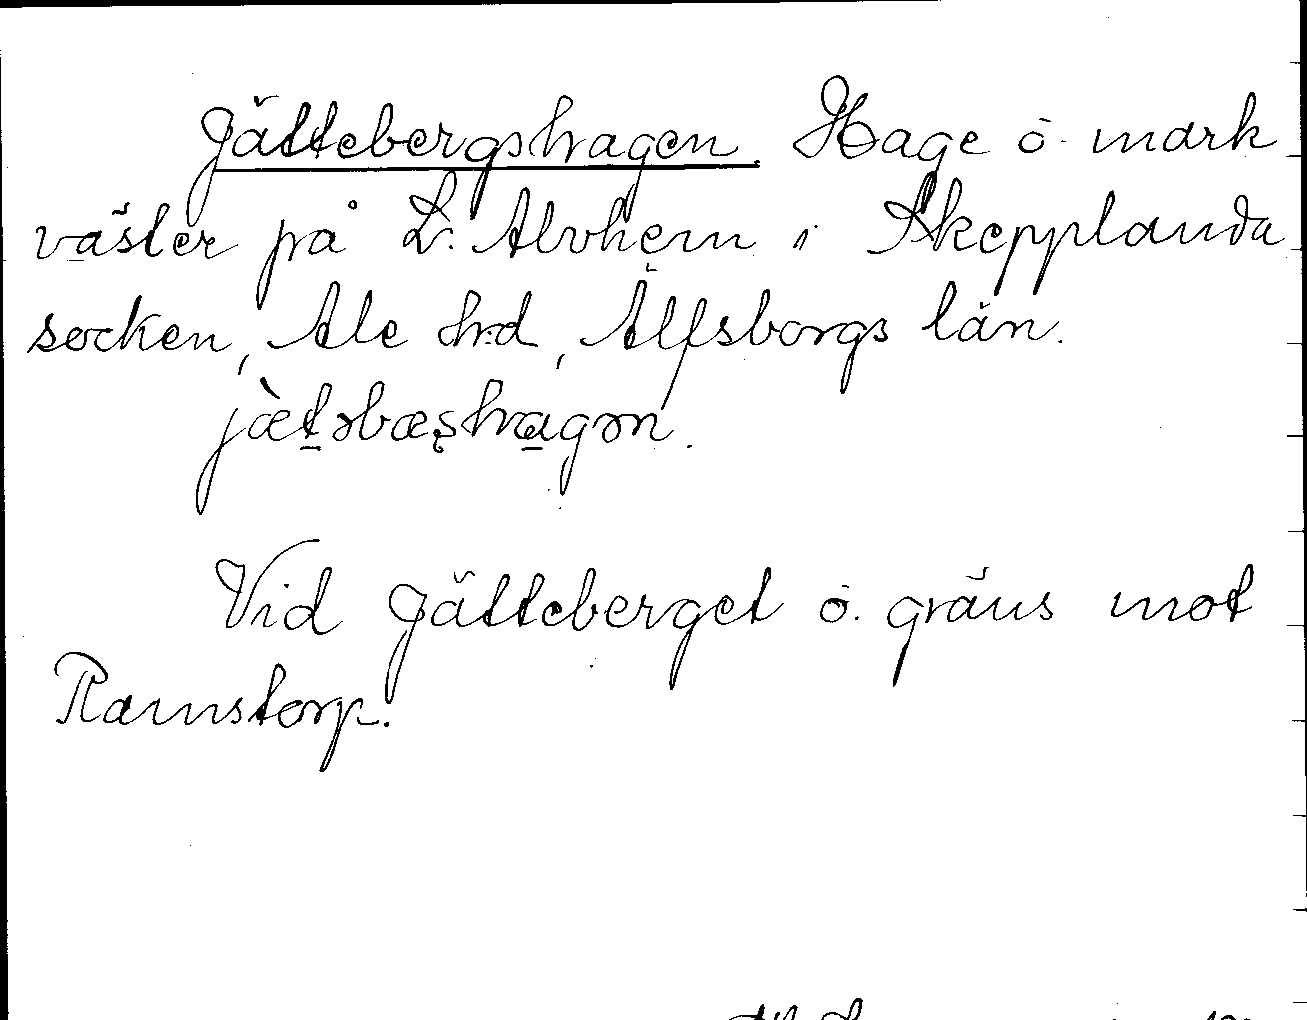 Jättebergshagen. Hage o. mark
väster på L. Alvhem i Skepplanda
socken, Ale hd, Älfsborgs län.
jæ̀t̲əbæʂha̲gən.
Vid Jätteberget o. gräns mot
Ramstorp.